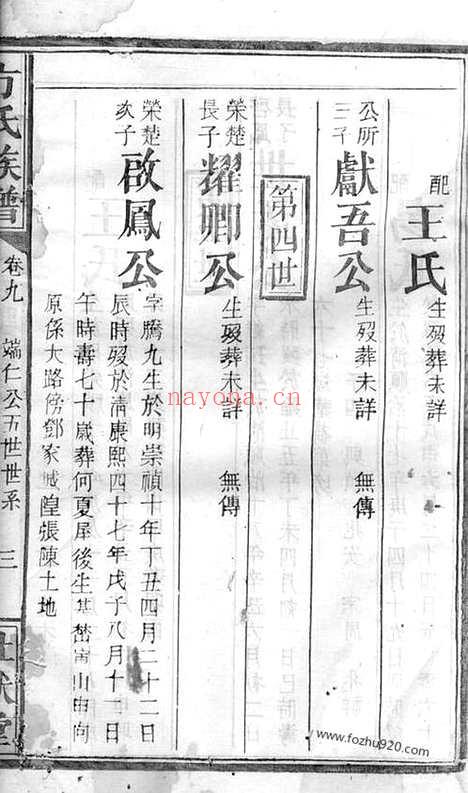 配
王氏
生歿葬未詳
公所
三子
獻吾公
生歿葬未詳 無傳
第四世
榮楚
長子
耀卿公
生歿葬未詳 無傳
榮楚
次子
啟鳳公
字騰九生於明崇禎十年丁丑四月二十二日
辰時歿於清康熙四十七年戊子八月十一日
午時壽七十歲葬何夏屋後生基 山申向
原係大路傍鄧家 隍張陳土地
方氏族譜
卷九
端仁公五世世系
三
堂
nayona.cn
www.fozhu920.com